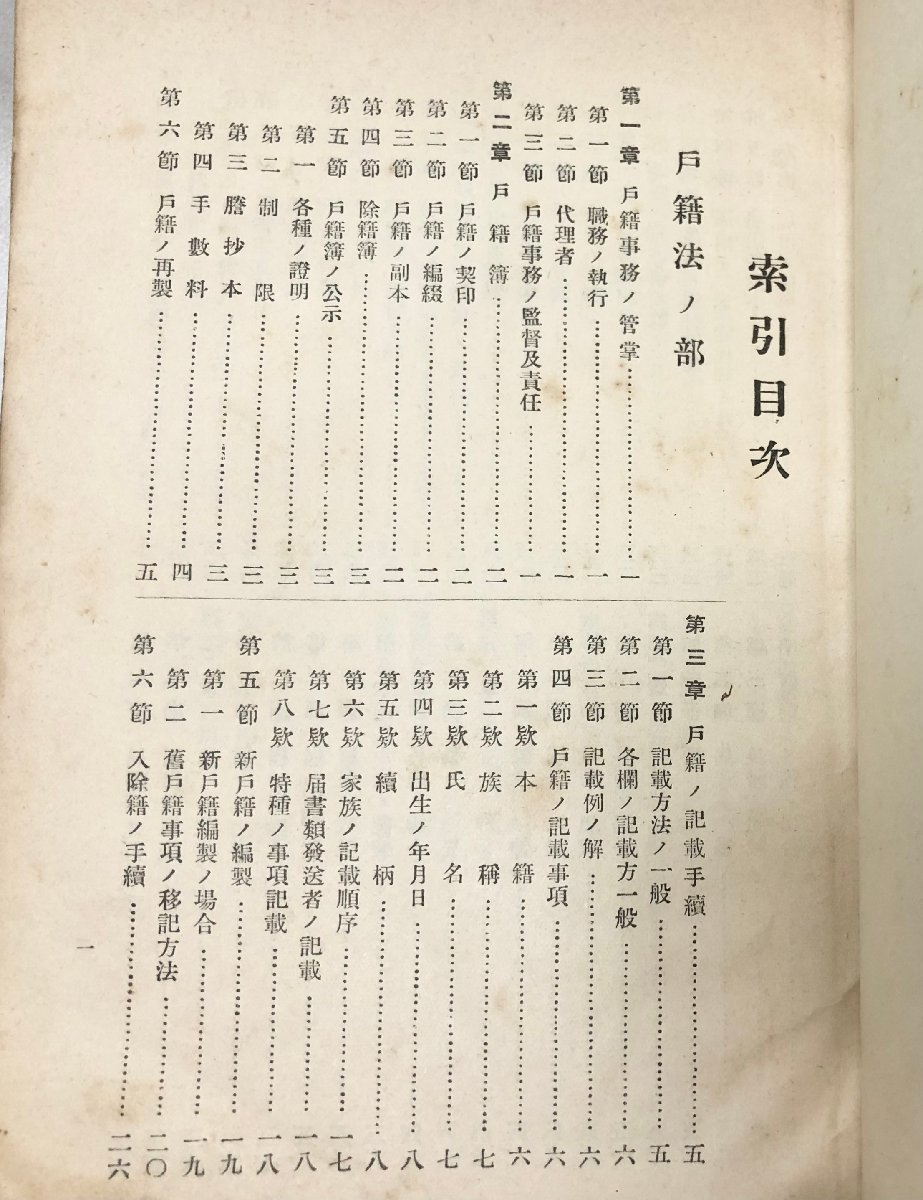 索引目次
戶籍法ノ部
第一章 戶籍事務ノ管掌……一
第一節 職務ノ執行……一
第二節 代理者……一
第三節 戶籍事務ノ監督及責任……一
第二章 戶籍簿……二
第一節 戶籍ノ契印……二
第二節 戶籍ノ編綴……二
第三節 戶籍ノ副本……二
第四節 除籍簿……三
第五節 戶籍簿ノ公示……三
第一 各種ノ證明……三
第二 制限……三
第三 謄抄本……三
第四 手數料……四
第六節 戶籍ノ再製……五
第三章 戶籍ノ記載手續……五
第一節 記載方法ノ一般……五
第二節 各欄ノ記載方一般……六
第三節 記載例ノ解……六
第四節 戶籍ノ記載事項……六
第一欵 本籍……六
第二欵 族稱……七
第三欵 氏名……七
第四欵 出生ノ年月日……八
第五欵 續柄……八
第六欵 家族ノ記載順序……一七
第七欵 届書類發送者ノ記載……一八
第八欵 特種ノ事項記載……一八
第五節 新戶籍ノ編製……一九
第一 新戶籍編製ノ場合……一九
第二 舊戶籍事項ノ移記方法……二〇
第六節 入除籍ノ手續……二六
一